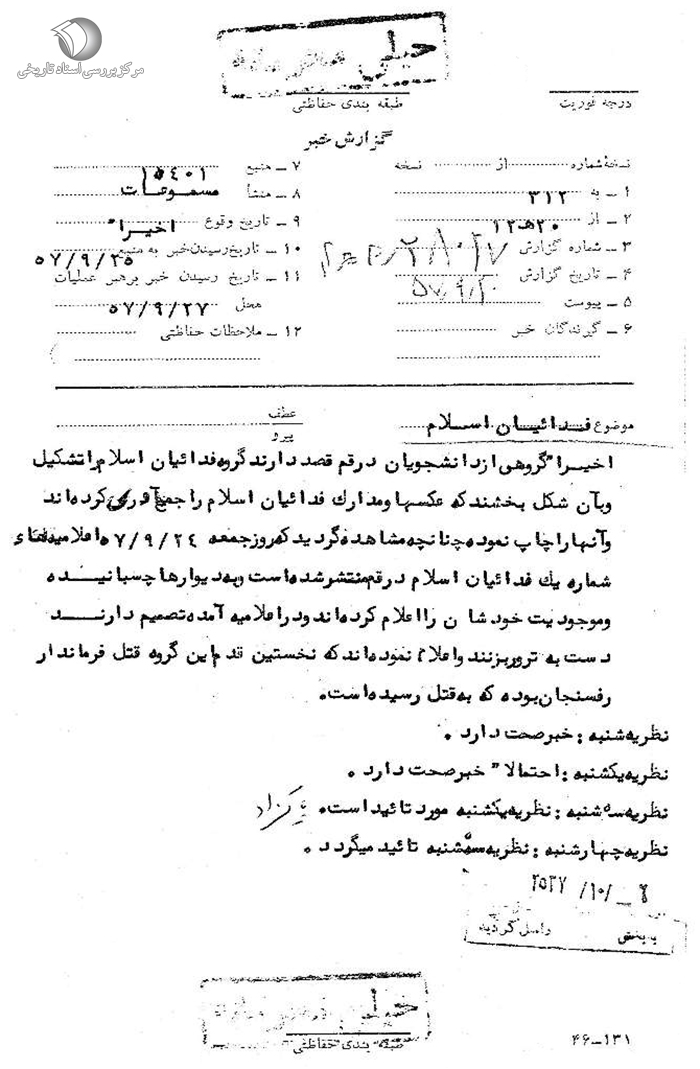 مرکز بررسی اسناد تاریخی
خیلی محرمانه
طبقه بندی حفاظتی
درجه فوریت
گزارش خبر
نسخه شماره از نسخه
۱ ـ به ۳۱۲
۲ ـ از ۲۰ هـ ۱۲
۳ ـ شماره گزارش
۴ ـ تاریخ گزارش
۵ ـ پیوست
۶ ـ گیرندگان خبر
۷ ـ منبع ۱۵۴۰۱
۸ ـ منشأ مسموعات
۹ ـ تاریخ وقوع اخیرا"
۱۰ ـ تاریخ رسیدن خبر به منبع ۵۷/۹/۲۵
۱۱ ـ تاریخ رسیدن خبر برهبر عملیات
محل ۵۷/۹/۲۷
۱۲ ـ ملاحظات حفاظتی
موضوع فدائیان اسلام
عطف
پیرو
اخیرا" گروهی از دانشجویان در قم قصد دارند گروه فدائیان اسلام را تشکیل
وبآن شکل بخشند که عکسها و مدارك فدائیان اسلام را جمع آوری کرده اند
و آنها را چاپ نموده چنانچه مشاهده گردید که روز جمعه ۵۷/۹/۲۴ اعلامیه های
شماره یك فدائیان اسلام در قم منتشر شده است وبه دیوارها چسبانیده
و موجودیت خود شان را اعلام کرده اند و در اعلامیه آمده تصمیم دارند
دست به ترور بزنند و اعلام نموده اند که نخستین قدم این گروه قتل فرماندار
رفسنجان بوده که به قتل رسیده است.
نظریه شنبه : خبر صحت دارد .
نظریه یکشنبه : احتمالا" خبر صحت دارد .
نظریه سه شنبه : نظریه یکشنبه مورد تائید است.
نظریه چهارشنبه : نظریه سه شنبه تائید میگردد .
واصل گردید
خیلی محرمانه
طبقه بندی حفاظتی
۴۶-۱۳۱